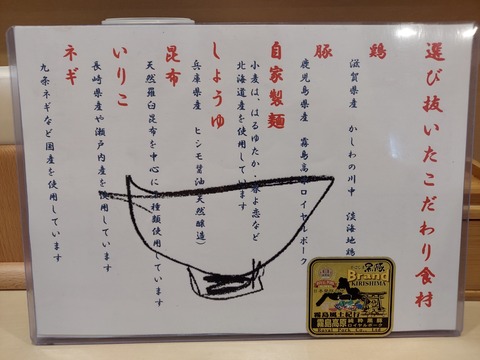 選び抜いたこだわり食材
鶏
滋賀県産 かしわの川中 淡海地鶏
豚
鹿児島県産 霧島高原ロイヤルポーク
自家製麺
小麦は、はるゆたか・春よ恋など
北海道産を使用しています
しょうゆ
兵庫県産 ヒシモ醤油(天然醸造)
昆布
天然羅臼昆布を中心に 種類使用しています
いりこ
長崎県産や瀬戸内産を使用しています
ネギ
九条ネギなど国産を使用しています
Brand
KIRISHIMA
霧島風土紀行
霧島高原純粋黒豚
ロイヤルポーク
Royal Pork Co., Ltd